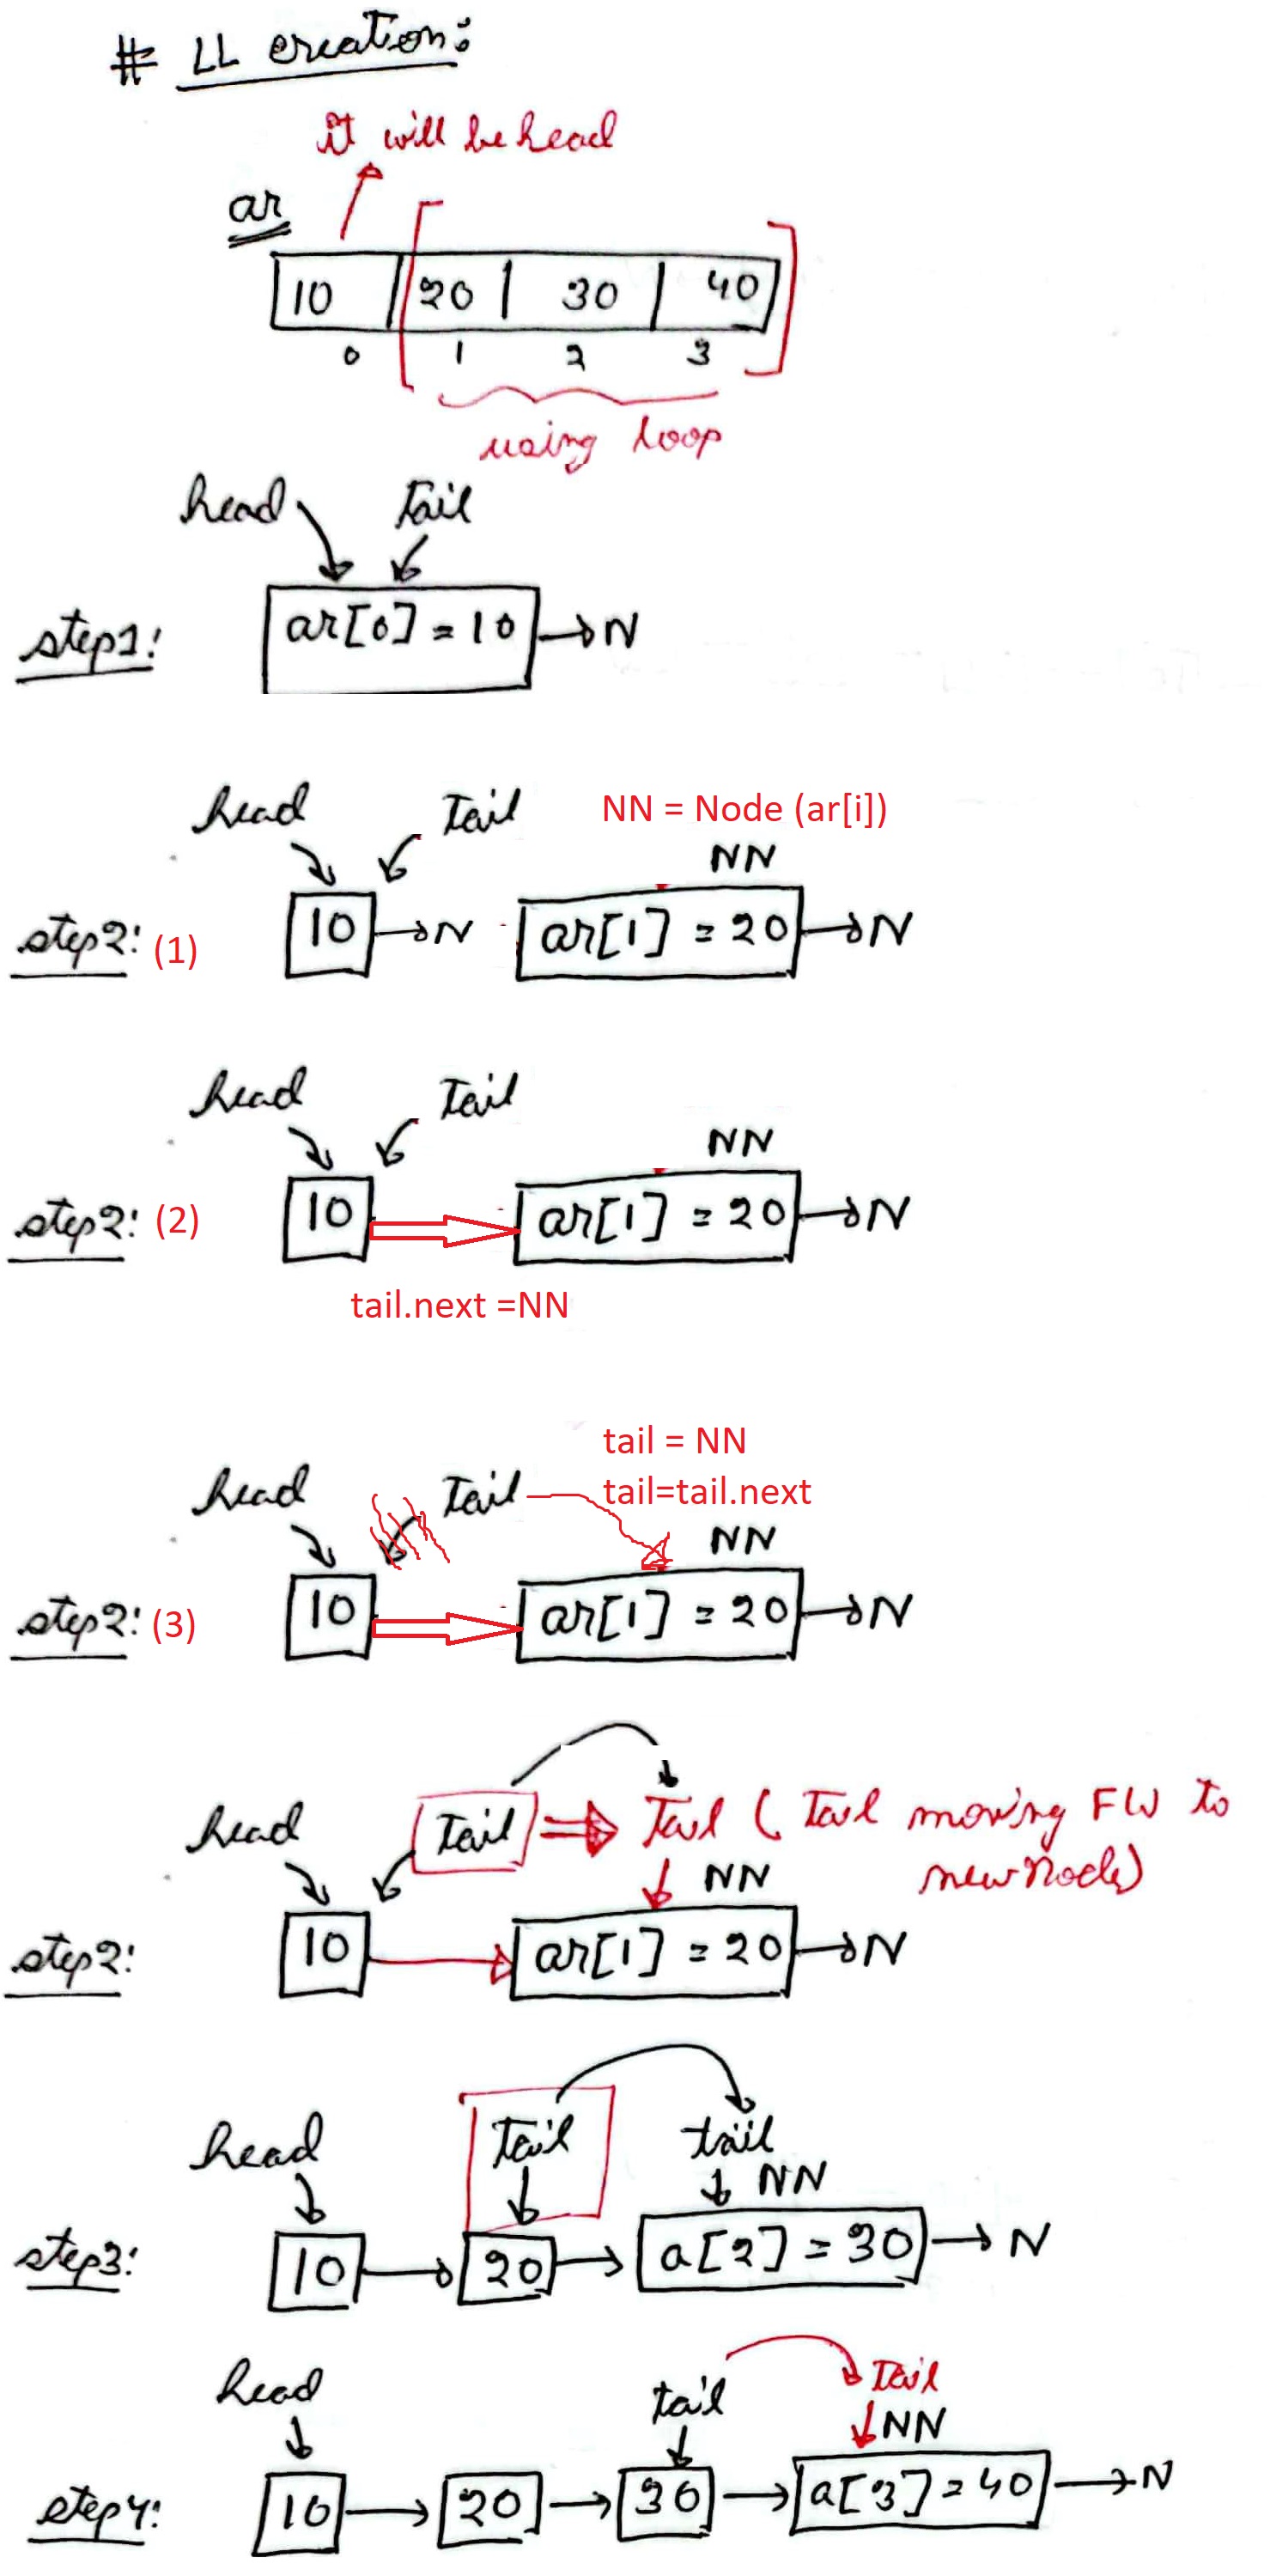 # LL creation:
it will be head
ar
10 20 30 40
0 1 2 3
using loop
head Tail
step1: ar[0] = 10 → N
head Tail NN = Node (ar[i])
NN
step2: (1) 10 → N ar[1] = 20 → N
head Tail
NN
step2: (2) 10 ar[1] = 20 → N
tail.next =NN
tail = NN
head Tail tail=tail.next
NN
step2: (3) 10 ar[1] = 20 → N
head Tail ⇒ Tail ( Tail moving FW to
NN new Node)
step2: 10 ar[1] = 20 → N
head Tail tail
NN
step3: 10 → 20 → a[2] = 30 → N
head tail Tail
NN
step4: 10 → 20 → 30 → a[3] = 40 → N